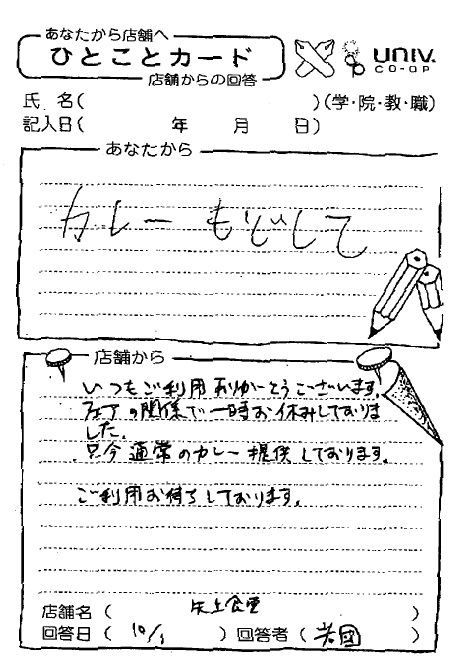 あなたから店舗へ
ひとことカード
店舗からの回答
UNIV.
CO-OP
氏 名( )(学・院・教・職)
記入日( 年 月 日)
あなたから
カレー もどして
店舗から
いつもご利用ありがとうございます。
フェアの関係で一時お休みしておりま
した。
只今通常のカレー提供しております。
ご利用お待ちしております。
店舗名( 矢上食堂 )
回答日( 10/1 )回答者( )